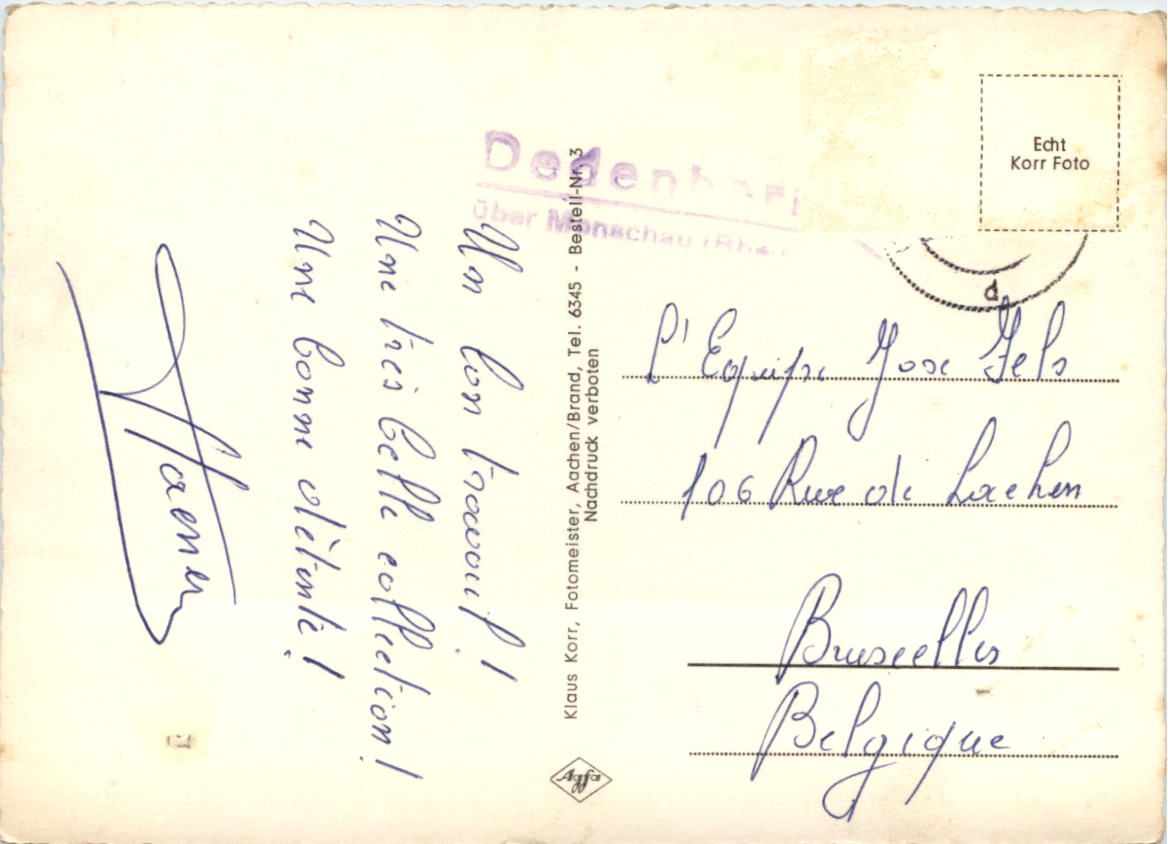 Un bon travail!
Une très belle collection!
Une bonne détente!
Klaus Korr, Fotomeister, Aachen/Brand, Tel. 6345 - Bestell-Nr. 3
Nachdruck verboten
Agfa
Echt
Korr Foto
über Monschau
d
L'Equipe Jose
106 Rue de Laeken
Bruxelles
Belgique